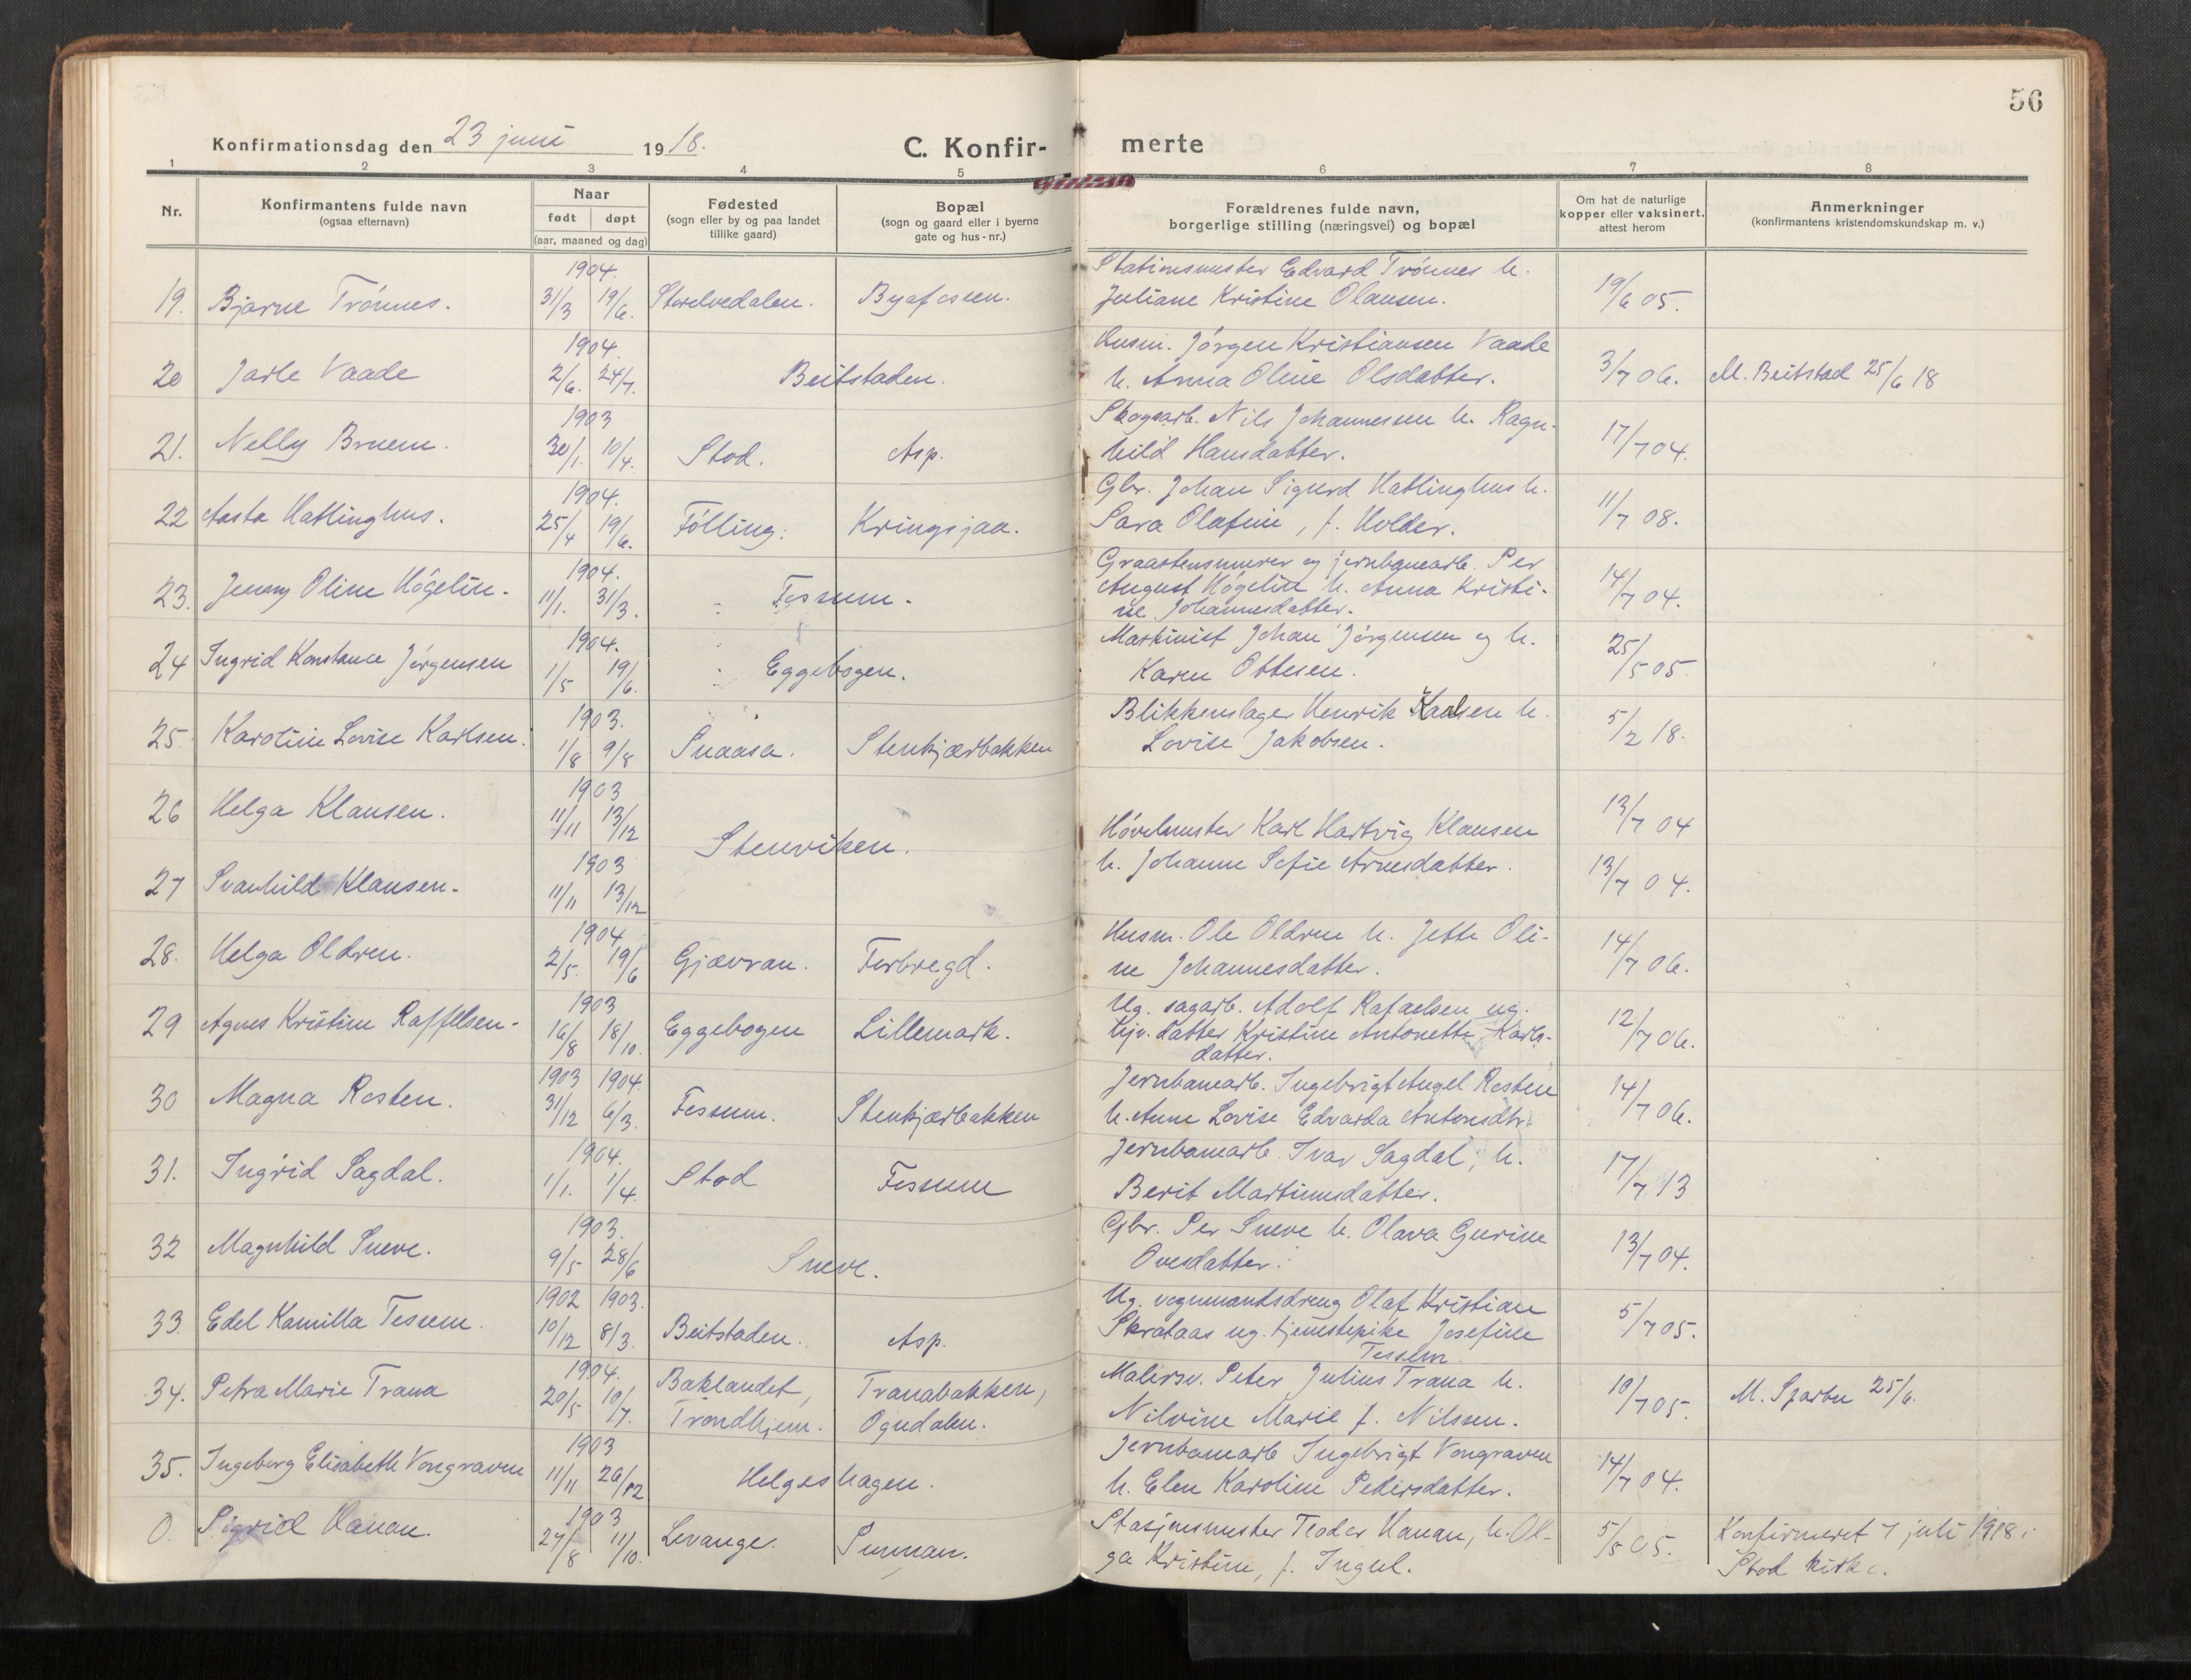 56
Konfirmationsdag den 23 juni 1918.
C. Konfir-merte
1 2 3 4 5 6 7 8
Nr.
Konfirmantens fulde navn
(ogsaa efternavn)
Naar
født døpt
(aar, maaned og dag)
Fødested
(sogn eller by og paa landet
tillike gaard)
Bopæl
(sogn og gaard eller i byerne
gate og hus-nr.)
Forældrenes fulde navn,
borgerlige stilling (næringsvei) og bopæl
Om hat de naturlige
kopper eller vaksinert,
attest herom
Anmerkninger
(konfirmantens kristendomskundskap m. v.)
1904. Stationsmester Edvard Trönnes h.
19. Bjarne Trönnes. 31/3 19/6. Byafossen. Juliane Kristine Olausen. 19/6 05.
1904. Husm. Jörgen Kristiansen Vaade
20 Jarle Vaade 2/6. 24/7. Beitstaden. h. Anna Oline Olsdatter. 3/7 06. M. Beitstad 25/6 18
1903 Skogsarb. Nils Johannessen h. Ragn-
21. Nelly Bruem. 30/1. 10/4. Stod. Asp. hild Hansdatter. 17/7 04.
1904. Gbr. Johan Sigurd Hatlinghus h.
22 Aasta Hatlinghus. 25/4 19/6. Fölling. Kringsjaa. Sara Olafine, f. Holder. 11/7 08.
1904. Graastensmurer og jernbanearb. Per
23. Jenny Oline Högelin. 11/1. 31/3. Fossum. August Högelin h. Anna Kristi-
ne Johannesdatter. 14/7 04.
1904. Maskinist Johan Jörgensen og h.
24 Ingrid Konstance Jörgensen 1/5 19/6. Eggebogen. Karen Ottesen. 25/5 05.
1903. Blikkenslager Henrik Karlsen h.
25. Karoline Lovise Karlsen. 1/8 9/8 Snaasa. Stenkjærbakken Lovise Jakobsen. 5/2 18.
1903
26 Helga Klausen. 11/11 13/12 Stenviken. Hövelmester Karl Hartvig Klausen 13/7 04
1903 h. Johanne Sofie Arnesdatter.
27 Svanhild Klausen. 11/11 13/12 13/7 04.
1904 Husm. Ole Oldren h. Jette Oli-
28. Helga Oldren. 2/5. 19/6 Gjævran. Forbregd. ne Johannesdatter. 14/7 06.
1903 Ug. sagarb. Adolf Rafaelsen ug.
29 Agnes Kristine Raffelsen. 16/8 18/10. Eggebogen Lillemark. datter Kristine Antonette Karls-
datter. 12/7 06.
1903 1904. Jernbanearb. Ingebrigt Angel Rosten
30 Magna Rosten. 31/12 6/3. Fossum. Stenkjærbakken h. Anne Lovise Edvarda Antonsdtr. 14/7 06.
1904. Jernbanearb. Ivar Sagdal, h.
31. Ingrid Sagdal. 1/1. 1/4. Stod Fossum Berit Martinusdatter. 17/7 13
1903. Gbr. Per Sneve h. Olava Gurine
32 Magnhild Sneve. 9/5 28/6 Sneve. Ovesdatter. 13/7 04.
1902 1903. Ug. vognmandsdreng Olaf Kristian
33. Edel Kamilla Tessem. 10/12 8/3. Beitstaden. Asp. Skrataas ug. tjenestepike Josefine
Tessem 5/7 05.
1904. Malersv. Peter Julius Trana h.
34. Petra Marie Trana 20/5 10/7. Baklandet, Trondhjem. Tranabakken, Ogndalen. Nilvine Marie f. Nilsen. 10/7 05. M. Sparbu 25/6.
1903 Jernbanearb Ingebrigt Vongraven
35. Ingeborg Elisabeth Vongraven 11/11 26/12 Helgeshagen. h. Elen Karoline Petersdatter. 14/7 04.
1903 Stasjonsmester Teodor Hanan, h. Ol-
0. Sigrid Hanan. 27/8 11/10. Levanger. Sunnan. ga Kristine, f. Ingul. 5/5 05. Konfirmeret 7 juli 1918 i
Stod kirke.